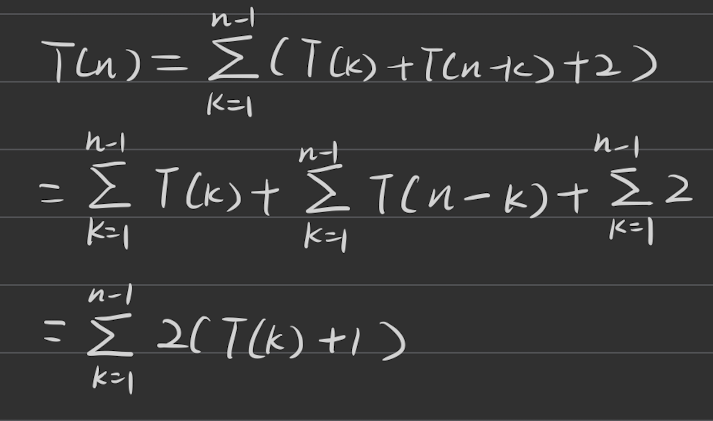 T(n) = \sum_{k=1}^{n-1} (T(k) + T(n-k) + 2)
= \sum_{k=1}^{n-1} T(k) + \sum_{k=1}^{n-1} T(n-k) + \sum_{k=1}^{n-1} 2
= \sum_{k=1}^{n-1} 2(T(k) + 1)